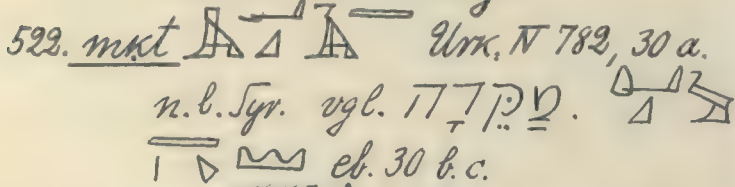 522. mkt Urk. IV 782, 30 a.
n. l. Syr. vgl. מַקֵּדָה.
eb. 30 b.c.